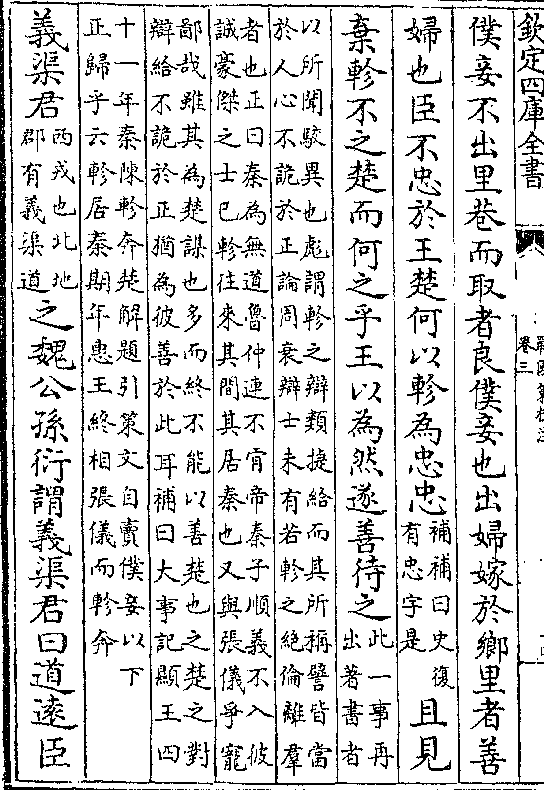 欽定四庫全書
卷三
僕妾不出里巷而取者良僕妾也出婦嫁於鄉里者善
婦也臣不忠於王楚何以軫為忠忠補補曰史復有忠字是且見
棄軫不之楚而何之乎王以為然遂善待之此一事再出著書者
以所聞駁異也彪謂軫之辯類捷給而其所稱譬皆當
於人心不詭於正論周衰辯士未有若軫之絶倫離羣
者也正曰秦為無道魯仲連不肯帝秦子順義不入彼
誠豪傑之士巳軫往來其間其居秦也又與張儀爭寵
鄙哉雖其為楚謀也多而終不能以善楚也之楚之對
辯給不詭於正猶為彼善於此耳補曰大事記顯王四
十一年秦陳軫奔楚解題引策文自賣僕妾以下
正歸乎六軫居秦期年惠王終相張儀而軫奔
義渠君西戎也北地郡有義渠道之魏公孫衍謂義渠君曰道逺臣